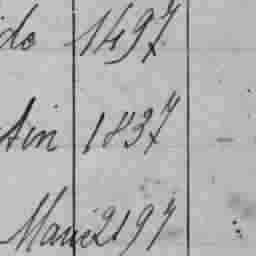 do 1497
tin 1837
Marie 2197